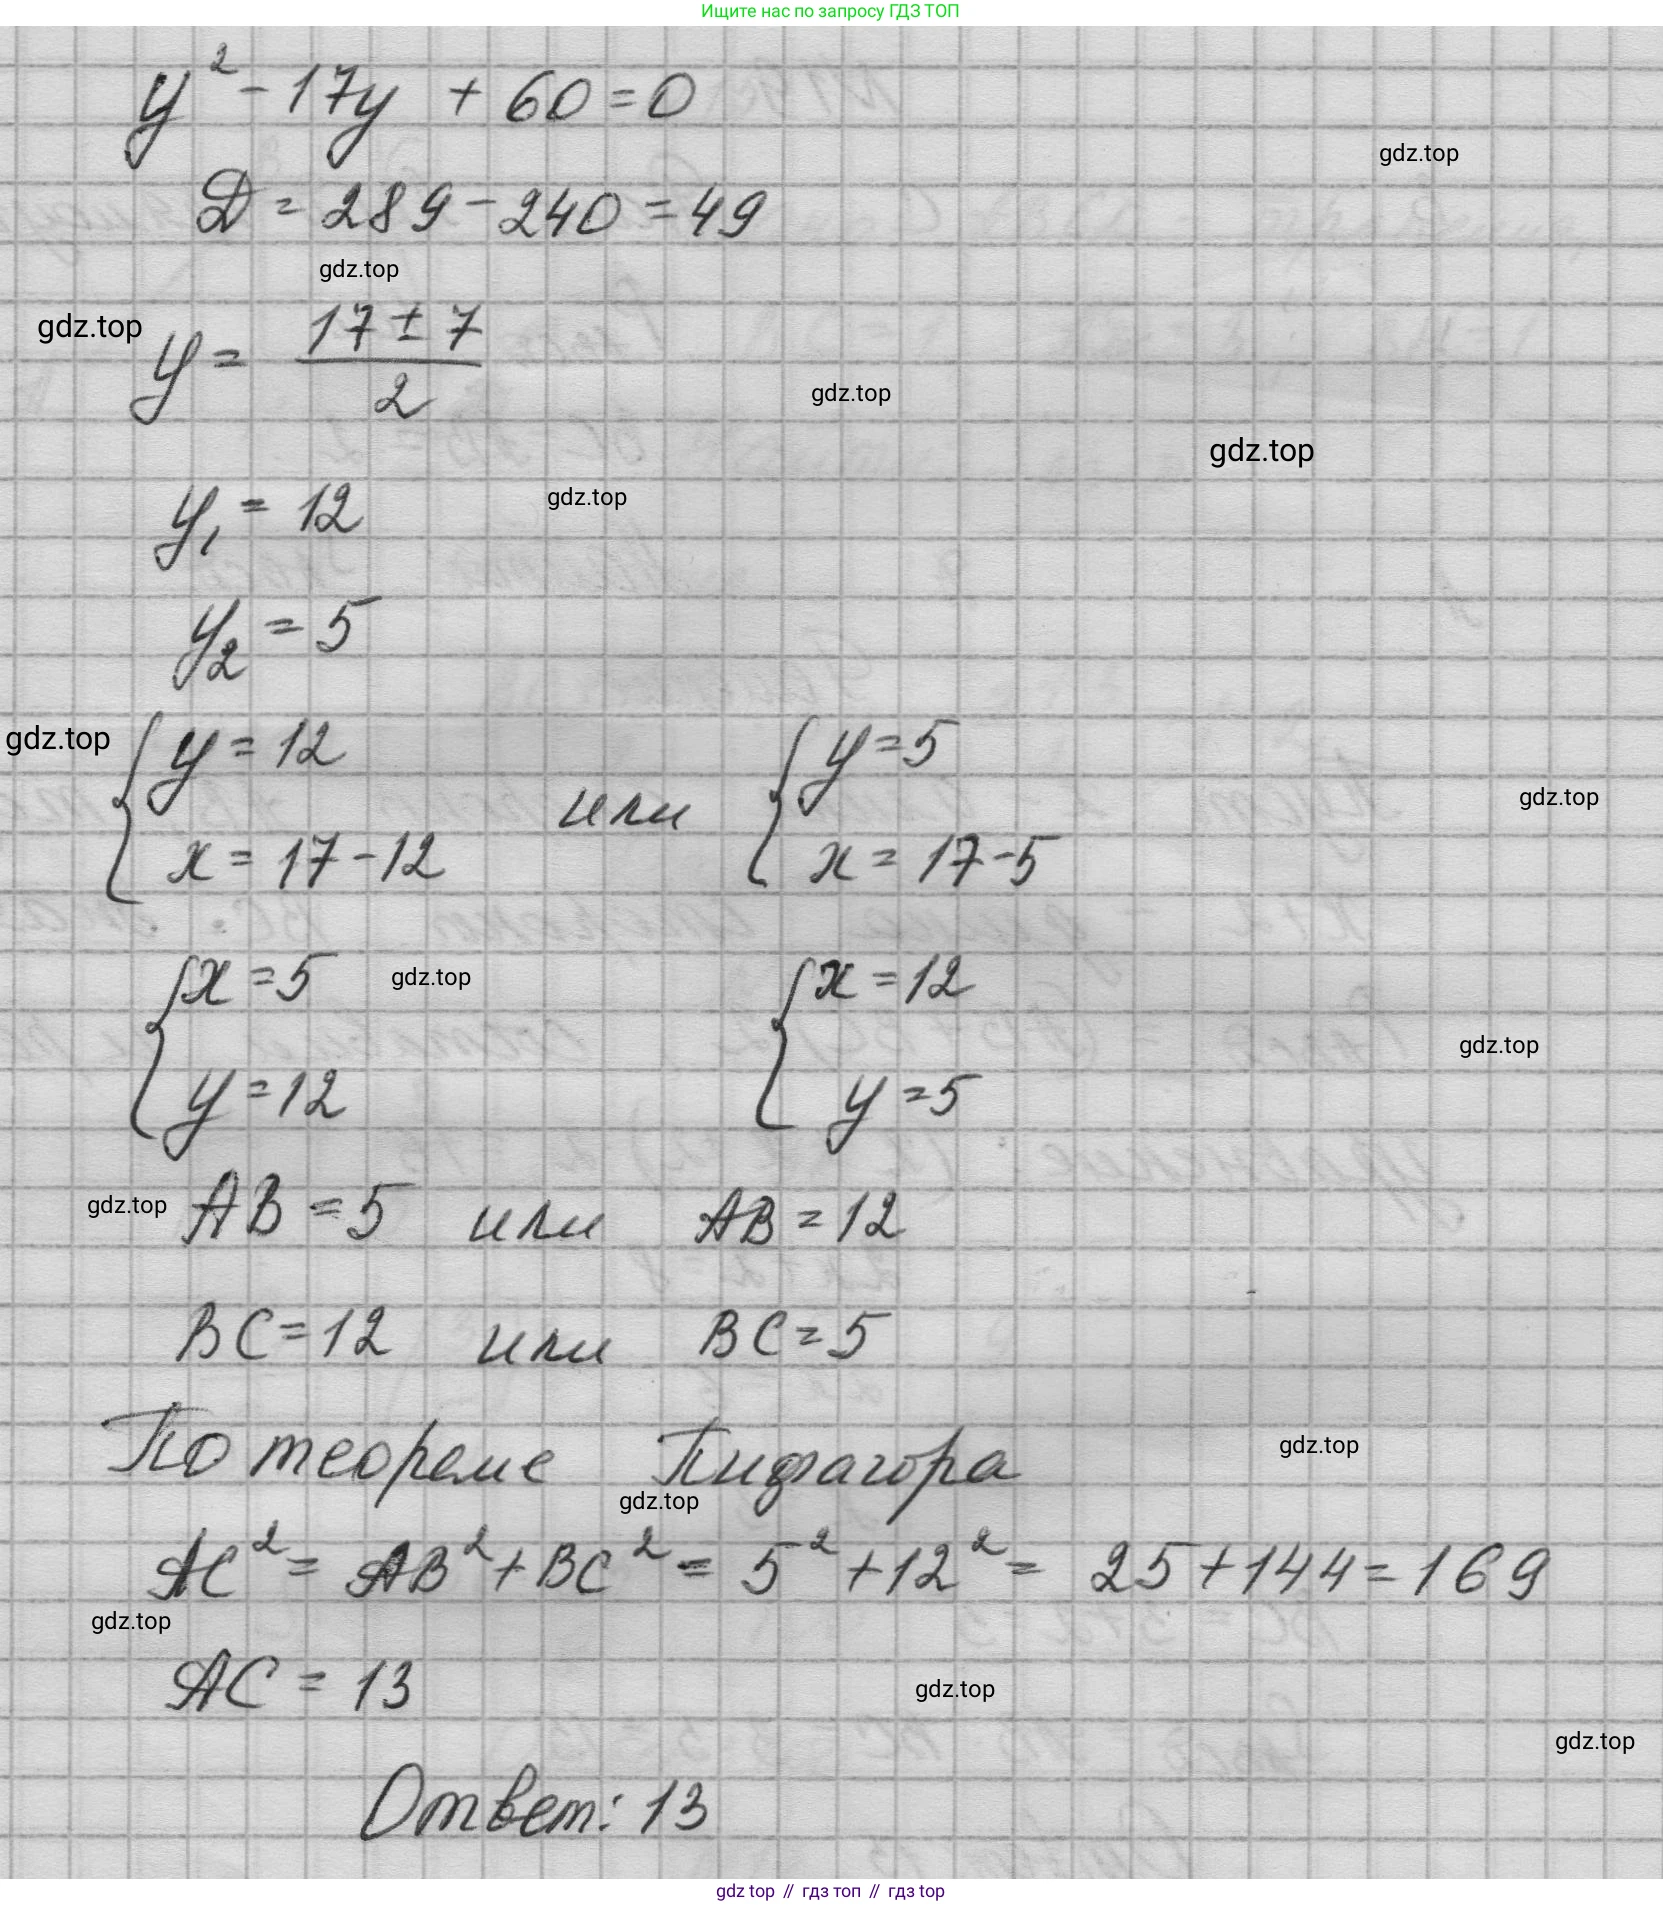 Ищите нас по запросу ГДЗ ТОП
y² - 17y + 60 = 0
gdz.top
D = 289 - 240 = 49
gdz.top
gdz.top
y = (17 ± 7)/2
gdz.top
gdz.top
y₁ = 12
gdz.top
y₂ = 5
gdz.top
{ y = 12 или { y = 5
gdz.top
x = 17 - 12 x = 17 - 5
{ x = 5 { x = 12
gdz.top
gdz.top
y = 12 y = 5
gdz.top
AB = 5 или AB = 12
BC = 12 или BC = 5
По теореме Пифагора
gdz.top
gdz.top
AC² = AB² + BC² = 5² + 12² = 25 + 144 = 169
gdz.top
AC = 13
gdz.top
gdz.top
Ответ: 13
gdz top // гдз топ // гдз top